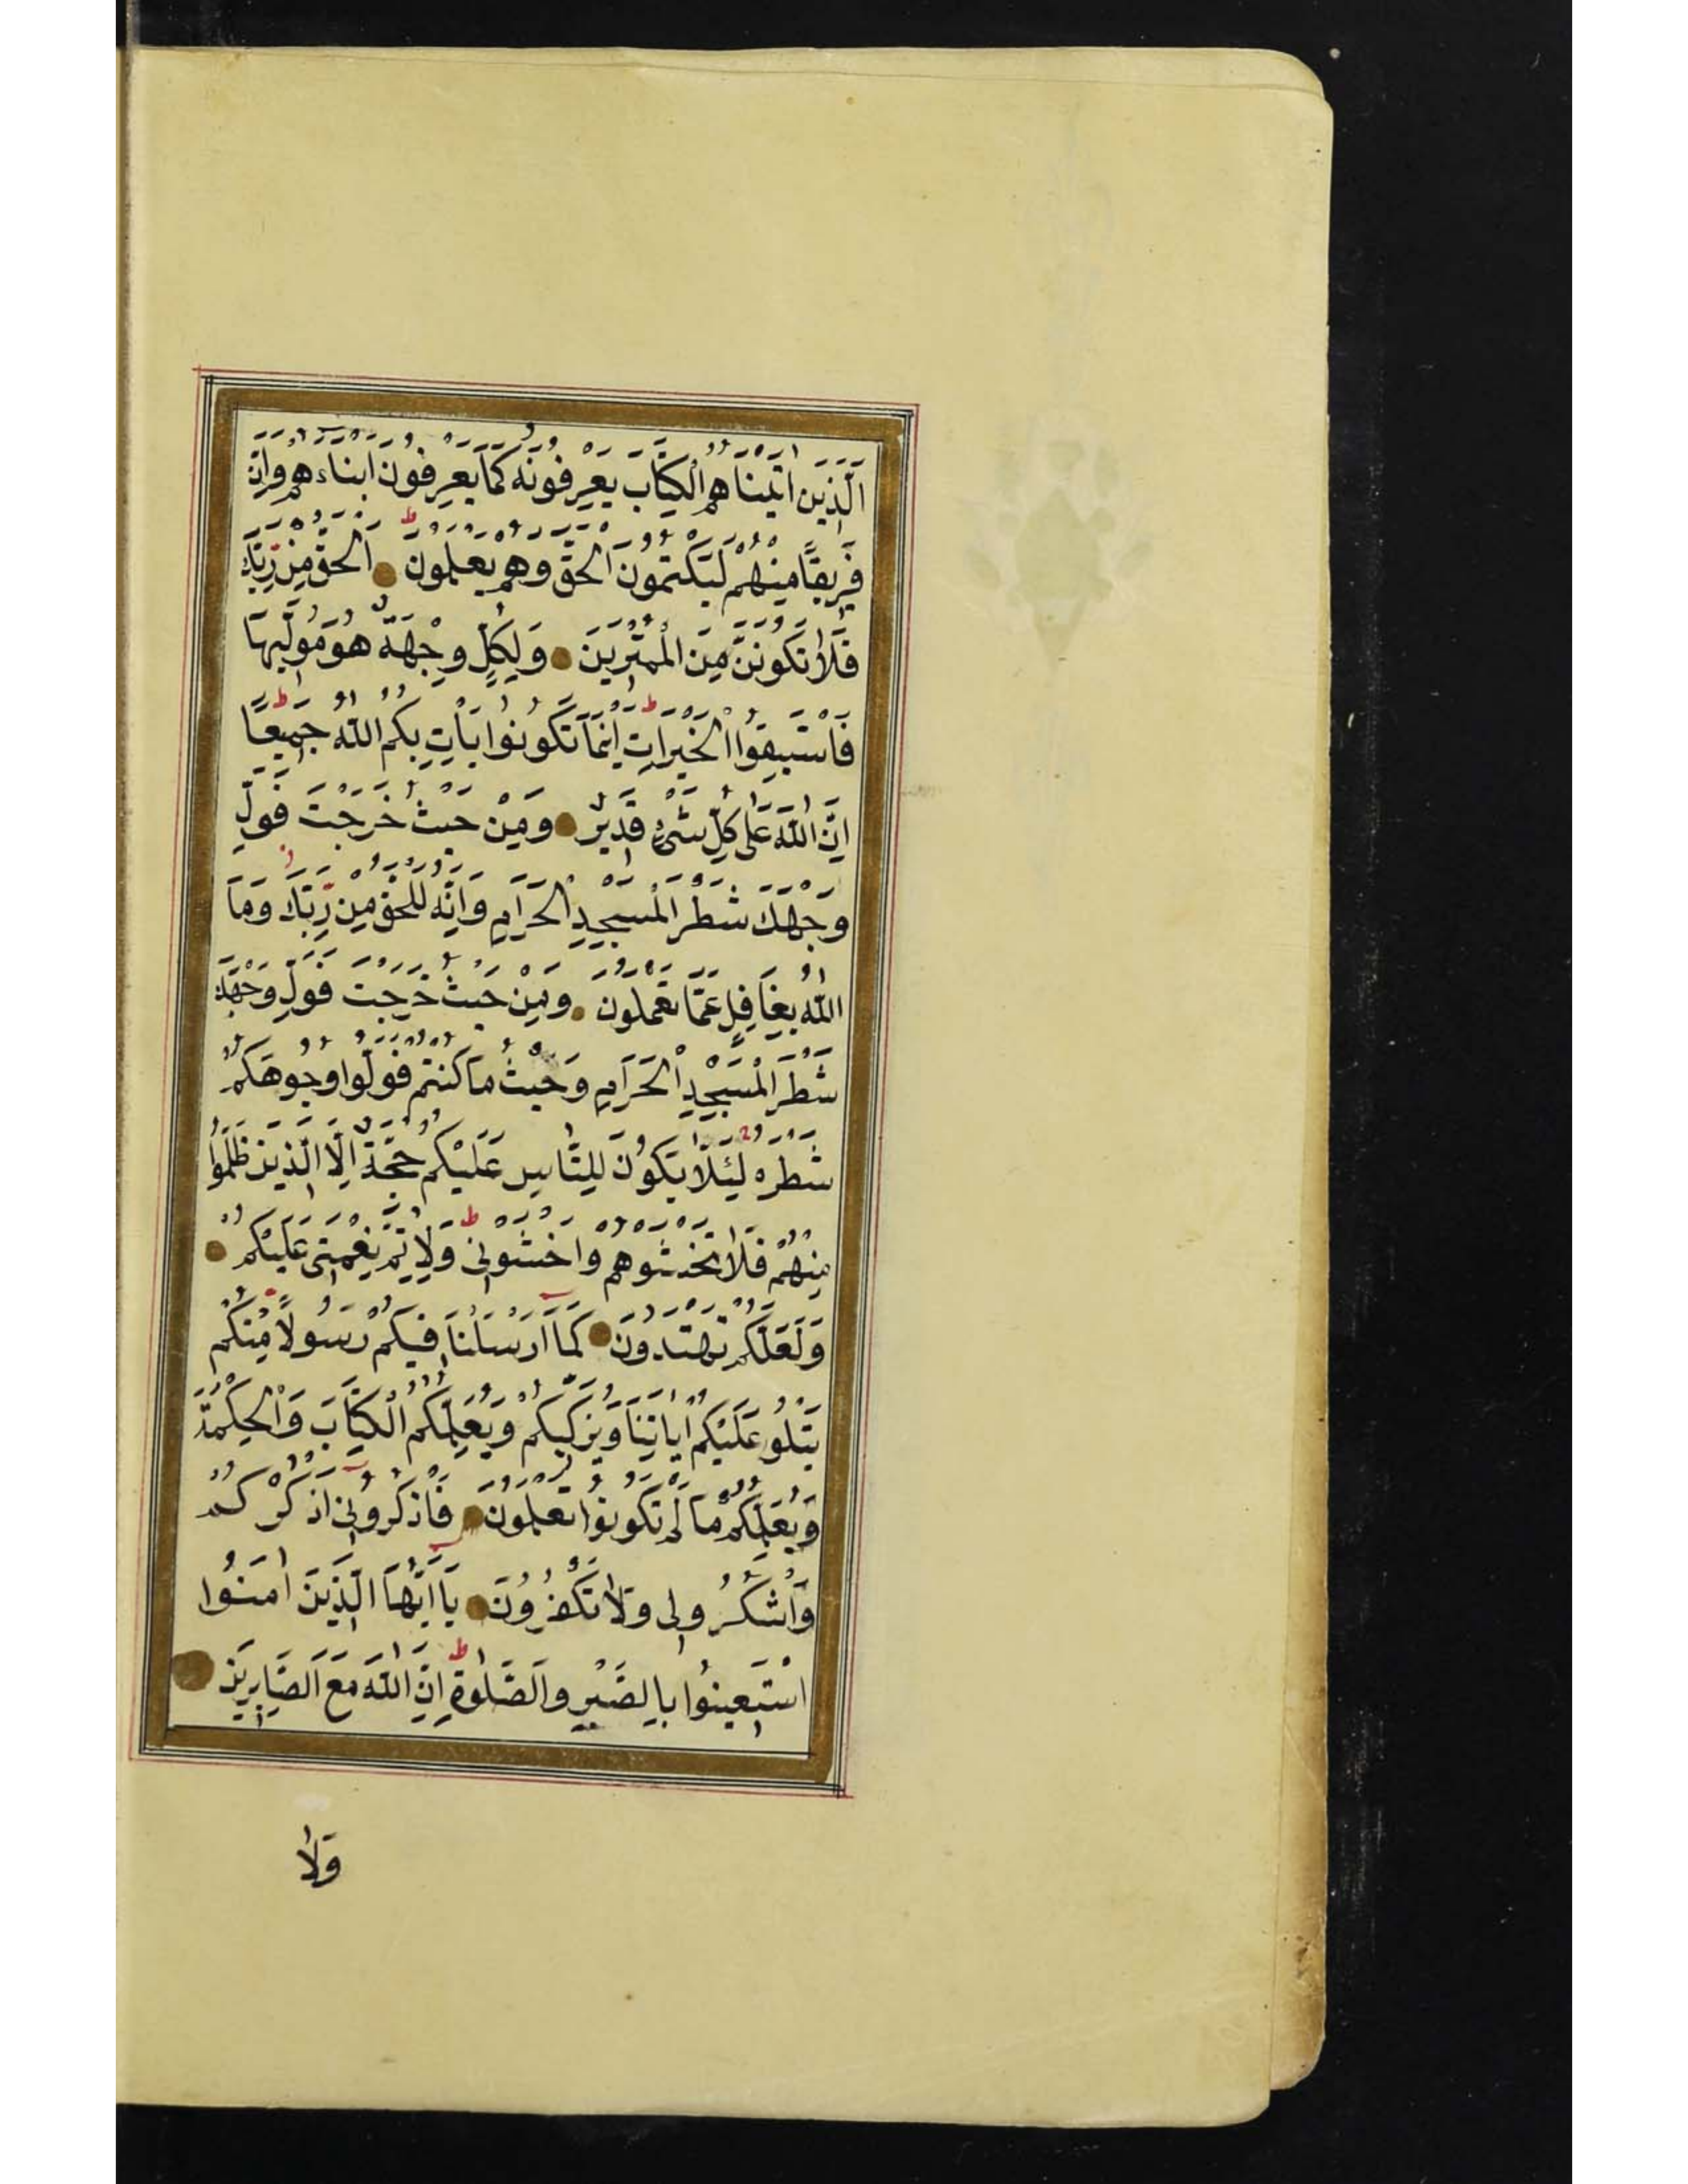 اَلَّذِينَ اٰتَيْنَاهُمُ الْكِتَابَ يَعْرِفُونَهُ كَمَا يَعْرِفُونَ اَبْنَاءَهُمْ وَاِنَّ
فَرِيقًا مِنْهُمْ لَيَكْتُمُونَ الْحَقَّ وَهُمْ يَعْلَمُونَ اَلْحَقُّ مِنْ رَبِّكَ
فَلَا تَكُونَنَّ مِنَ الْمُمْتَرِينَ وَلِكُلٍّ وِجْهَةٌ هُوَ مُوَلِّيهَا
فَاسْتَبِقُوا الْخَيْرَاتِ اَيْنَمَا تَكُونُوا يَأْتِ بِكُمُ اللّٰهُ جَمِيعًا
اِنَّ اللّٰهَ عَلٰى كُلِّ شَىْءٍ قَدِيرٌ وَمِنْ حَيْثُ خَرَجْتَ فَوَلِّ
وَجْهَكَ شَطْرَ الْمَسْجِدِ الْحَرَامِ وَاِنَّهُ لَلْحَقُّ مِنْ رَبِّكَ وَمَا
اللّٰهُ بِغَافِلٍ عَمَّا تَعْمَلُونَ وَمِنْ حَيْثُ خَرَجْتَ فَوَلِّ وَجْهَكَ
شَطْرَ الْمَسْجِدِ الْحَرَامِ وَحَيْثُ مَا كُنْتُمْ فَوَلُّوا وُجُوهَكُمْ
شَطْرَهُ لِئَلَّا يَكُونَ لِلنَّاسِ عَلَيْكُمْ حُجَّةٌ اِلَّا الَّذِينَ ظَلَمُوا
مِنْهُمْ فَلَا تَخْشَوْهُمْ وَاخْشَوْنِى وَلِاُتِمَّ نِعْمَتِى عَلَيْكُمْ
وَلَعَلَّكُمْ تَهْتَدُونَ كَمَا اَرْسَلْنَا فِيكُمْ رَسُولًا مِنْكُمْ
يَتْلُو عَلَيْكُمْ اٰيَاتِنَا وَيُزَكِّيكُمْ وَيُعَلِّمُكُمُ الْكِتَابَ وَالْحِكْمَةَ
وَيُعَلِّمُكُمْ مَا لَمْ تَكُونُوا تَعْلَمُونَ فَاذْكُرُونِى اَذْكُرْكُمْ
وَاشْكُرُوا لِى وَلَا تَكْفُرُونَ يَا اَيُّهَا الَّذِينَ اٰمَنُوا
اسْتَعِينُوا بِالصَّبْرِ وَالصَّلٰوةِ اِنَّ اللّٰهَ مَعَ الصَّابِرِينَ
وَلَا